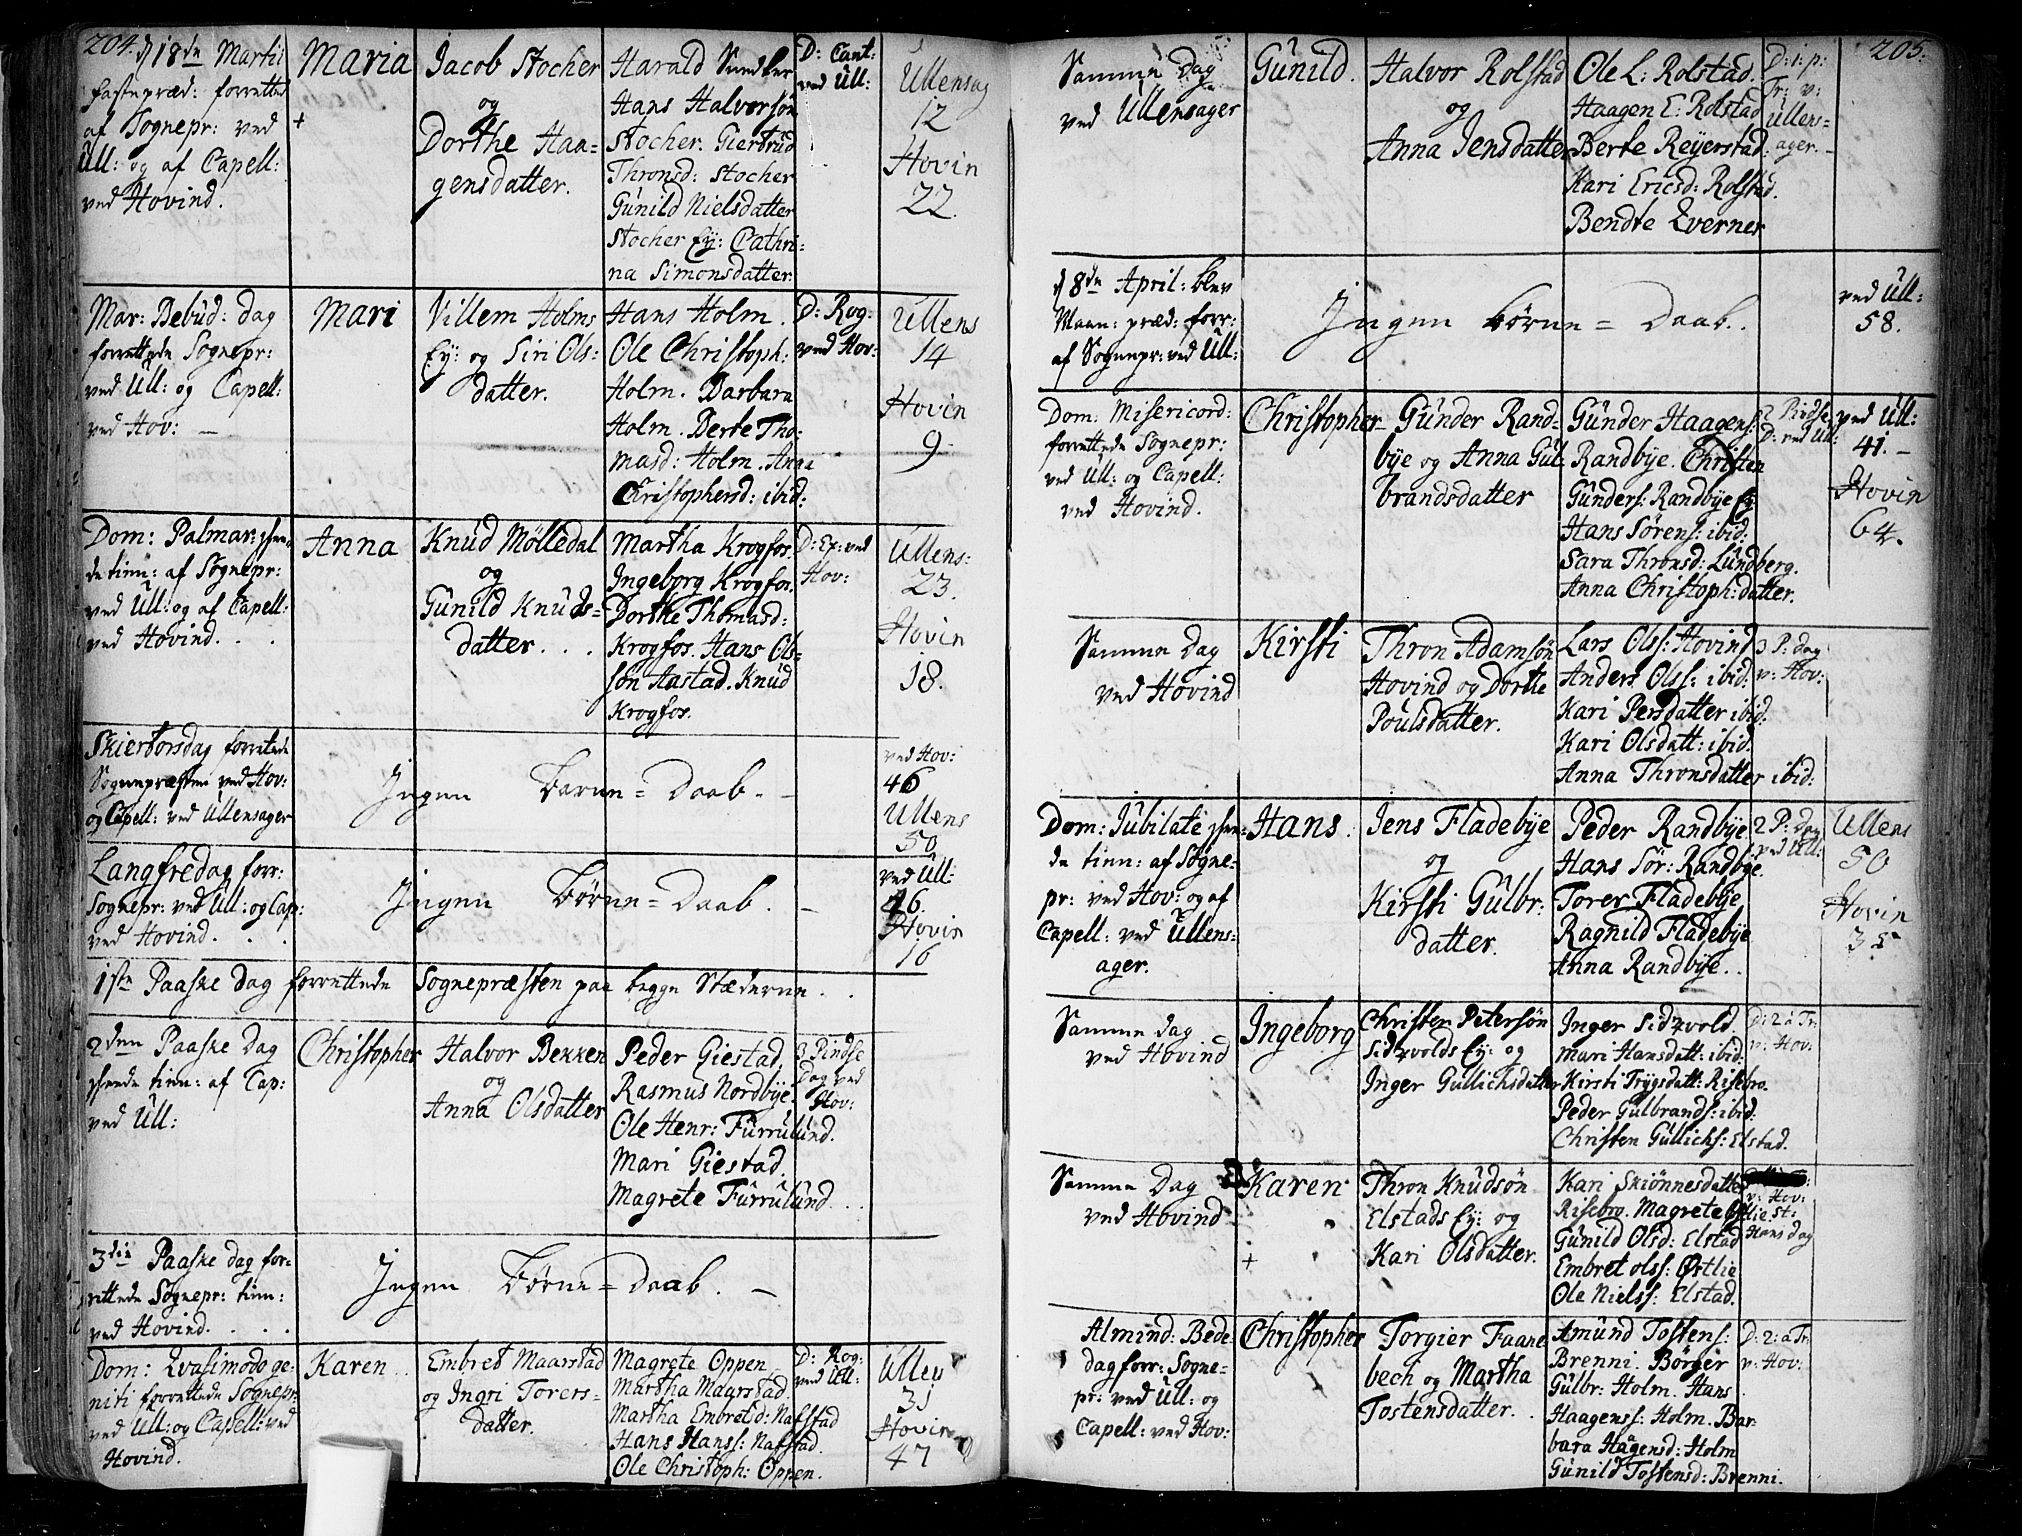 204.
d 18de Martii
fastepræd: forrettet
af Sognepr: ved
Ull: og af Capell:
ved Hovind.
Maria
+
Jacob Stocher
og
Dorthe Haa=
gensdatter.
Harald
Hans Halvorsøn
Stocher. Giertrud
Thronsd: Stocher
Gunild Nielsdatter
Stocher Ey: Cathri=
na Simonsdatter
D: Cant:
ved Ull:
Ullensag
12
Hovin
22.
Mar: Bebud: dag
forrettede Sognepr:
ved Ull: og Capell:
ved Hov: —
Mari
Villem Holms
Ey: og Siri Ols:
datter.
Hans Holm.
Ole Christoph:
Holm. Barbara
Holm. Berte Tho:
masd: Holm. Anna
Christophersd: ibid:
D: Rog:
ved Hov:
Ullens
14
Hovin
9.
Dom: Palmar:
de tien: af Sognepr:
ved Ull: og af Capell:
ved Hovind. . .
Anna
Knud Mölledal
og
Gunild Knuds=
datter. . .
Martha Krogfos.
Ingeborg Krogfos.
Dorthe Thomasd:
Krogfos. Hans Ols=
søn Aastad. Knud
Krogfos.
D: Ex: ved
Hov:
Ullens:
23.
Hovin
18.
Skiertorsdag forrettede
Sognepræsten ved Hov:
og Capell: ved Ullensager
Ingen Børne= Daab. —
ved Hov:
46
Ullens
50.
Langfredag forr:
Sognepr: ved Ull: og Cap:
ved Hovind. . .
Ingen Børne= Daab. —
ved Ull:
46.
Hovin
16
1ste Paaske Dag forrettede Sognepræsten paa begge Stæderne. .
2den Paaske Dag
skeede tien: af Cap:
ved Ull:
Christopher
Halvor Bekken
og
Anna Olsdatter
Peder Giestad.
Rasmus Nordbye.
Ole Henr: Furrulund.
Mari Giestad.
Magrete Furrulund. . .
3 Pindse
Dag ved
Hov:
3die Paaske dag for=
rettede Sognepr: tien:
ved Hovind. . . .
Ingen Børne= Daab. —
Dom: Qvasimodo ge=
niti forrettede Sognepr:
ved Ull: og Capell: ved
Hovind.
Karen. .
Embret Maarstad
og Ingri Torers=
datter.
Magrete Oppen
Martha Maarstad.
Martha Embretsd: Nafstad
Hans Hanss: Nafstad.
Ole Christoph: Oppen.
D: Rog:
ved Ull:
Ullen
31
Hovin
47
205.
Samme Dag
ved Ullensager
Gunild.
Halvor Rolstad
og
Anna Jensdatter
Ole L: Rolstad.
Haagen E: Rolstad
Berte Reyerstad.
Kari Ericsd: Rolstad.
Bendte Everner
D: 1: p:
Tr: v:
Ullens=
ager. —
d 8de April: blev
Maan: præd: forr:
af Sognepr: ved Ull:
Ingen Børne= Daab. .
ved Ull:
58.
Dom: Misericord:
forrettede Sognepr:
ved Ull: og Capell:
ved Hovind.
Christopher
Gunder Rand=
bye og Anna Gul=
brandsdatter
Gunder Haagens:
Randbye. Christen
Gunders: Randbye Ey:
Hans Sörens: ibid:
Sara Thronsd: Lundberg.
Anna Christoph: datter.
2 Pindse
D: ved Ull:
ved Ull:
41. —
Hovin
64.
Samme Dag
ved Hovind
Kirsti
Thron Adamsön
Hovind og Dorthe
Poulsdatter.
Lars Olss: Hovind
Anders Olss: ibid:
Kari Persdatter ibid.
Kari Olsdatt: ibid.
Anna Thronsdatter ibid:
3 P: dag
v: Hov:
Dom: Jubilate skee=
de tien: af Sogne=
pr: ved Hov: og af
Capell: ved Ullens=
ager.
Hans.
Jens Fladebye
og
Kirsti Gulbr:
datter.
Peder Randbye
Hans Sör: Randbye.
Torer Fladebye
Ragnild Fladebye
Anna Randbye. .
2 P: Dag
ved Ull:
Ullens
50
Hovin
35
Samme dag
ved Hovind
Ingeborg
Christen Petersön
Sidzvolds Ey: og
Inger Gullichsdatter
Inger Sidzvold.
Mari Hansdatt: ibid:
Kirsti Trygsdatt: Risebro.
Peder Gulbrands: ibid.
Christen Gullichs: Elstad.
D: 2 à Tr:
v: Hov:
Samme Dag
ved Hovind
Karen
+
Thron Knudsön
Elstads Ey: og
Kari Olsdatter.
Kari Skiönnesdatter
Risebro. Magrete
Gunild Olsd: Elstad
Embret Olss: Østlie
Ole Nielss: Elstad.
v: Hov:
St:
Hans dag
Almind: Bede
dag forr: Sogne=
pr: ved Ull: og
Capell: ved Hov:
Christopher
Torgier Faane
bech og Martha
Tostensdatter. .
Amund Tostens:
Brenni. Börger
Gulbr: Holm. Hans
Haagenss: Holm. Bar=
bara Haagensd: Holm
Gunild Tostensd: Brenni.
D: 2: à Tr:
v: Hov: